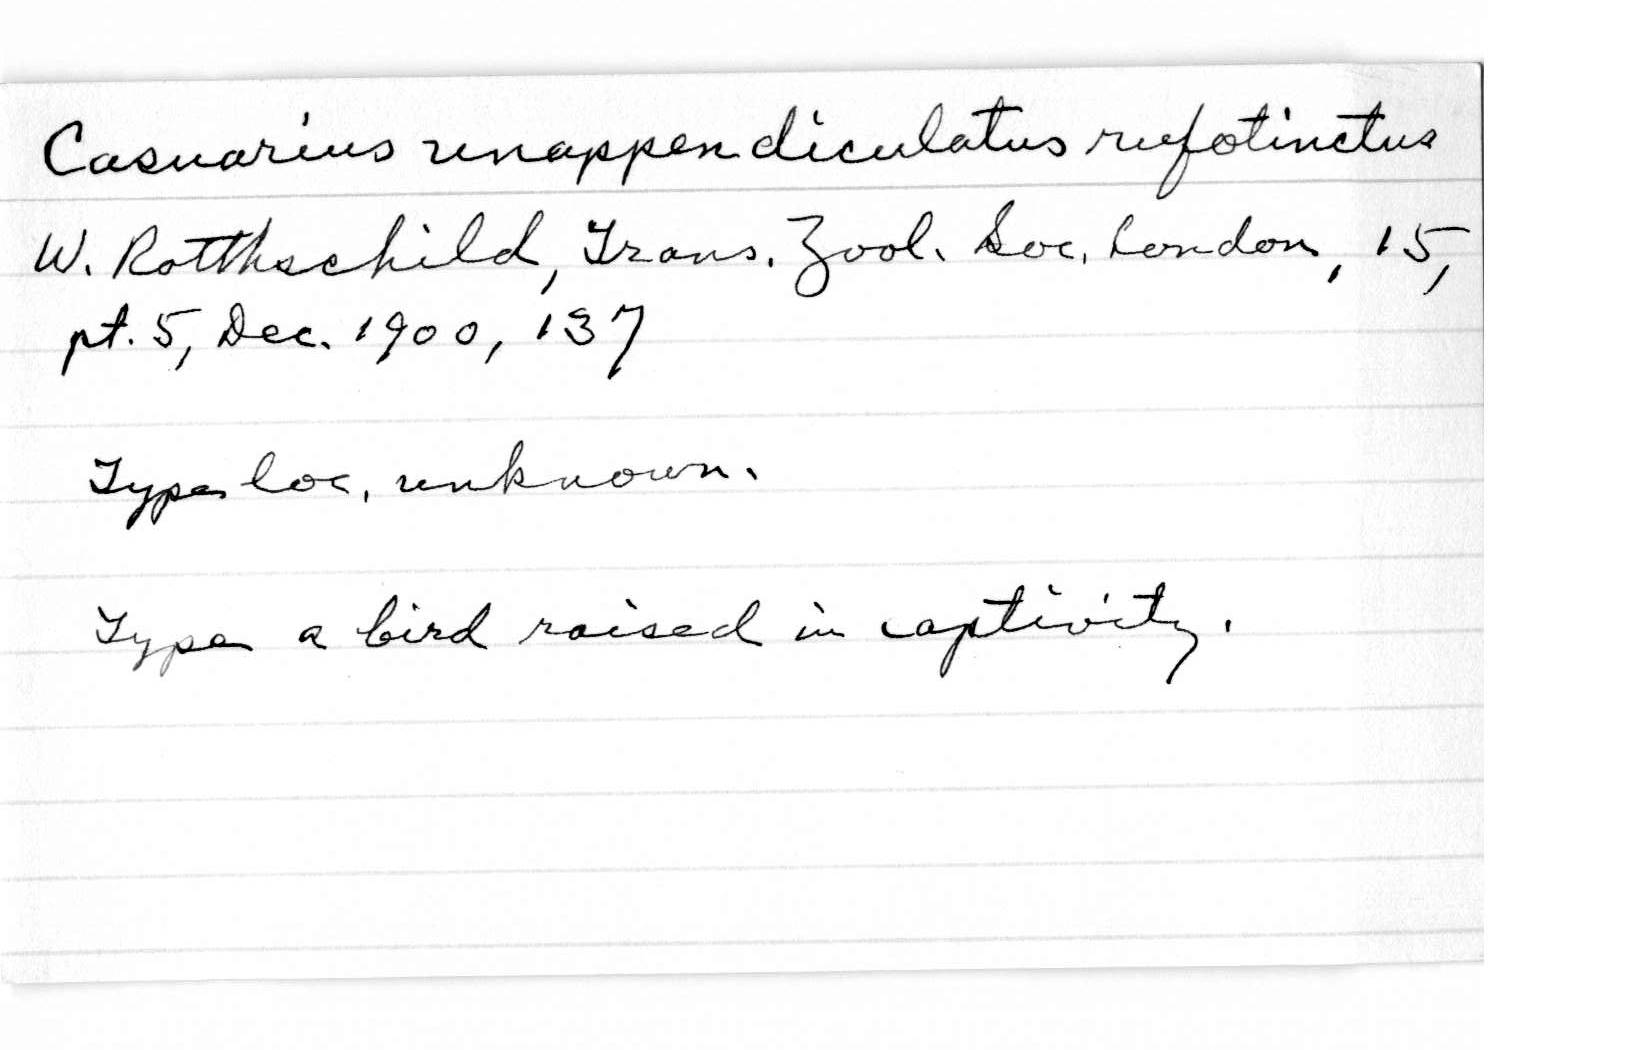 Casuarius unappendiculatus rufotinctus
W. Rotthschild, Trans. Zool. Soc. London, 15,
pt. 5, Dec. 1900, 137
Type loc. unknown.
Type a bird raised in captivity.